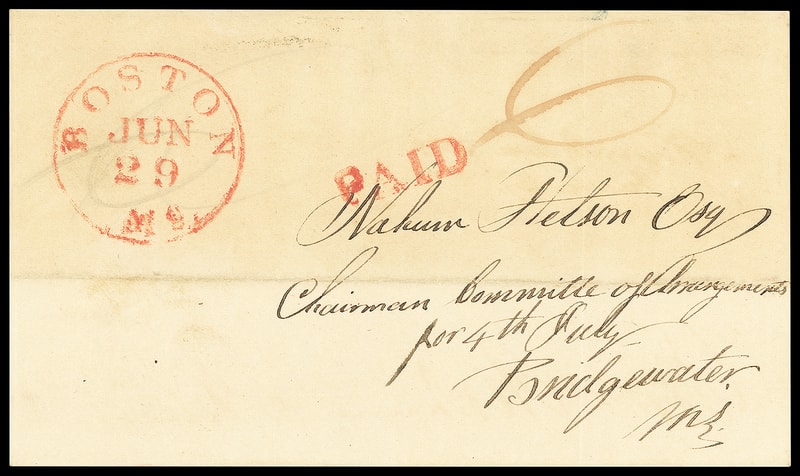 BOSTON
JUN
29
Ms.
PAID
6
Nahum Stetson Esq
Chairman Committe of Arrangements
for 4th July
Bridgewater
Ms.